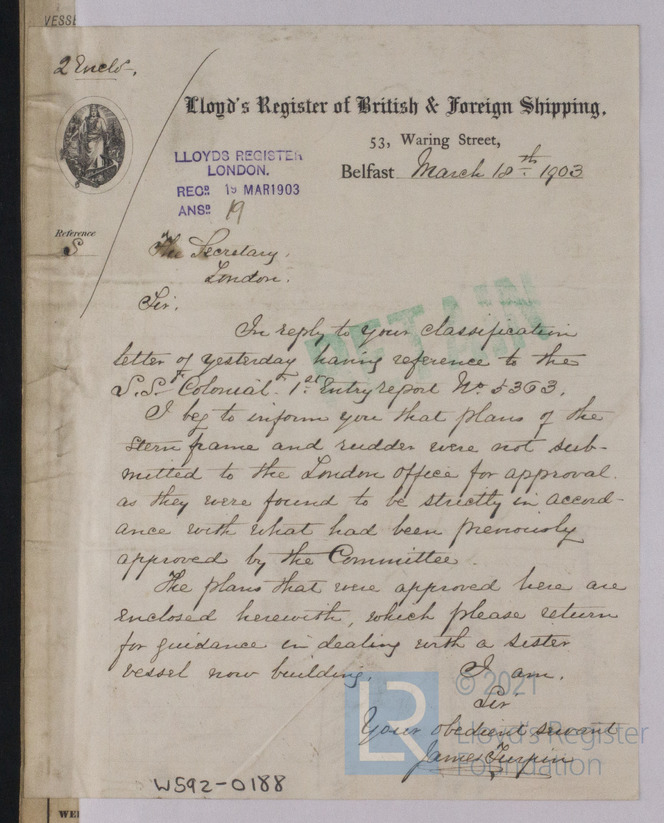 VESSE
2 Enclo.
Lloyd's Register of British & Foreign Shipping,
53, Waring Street,
Belfast March 18th 1903
LLOYDS REGISTER
LONDON.
RECD 19 MAR 1903
ANSD 19
Reference
S
The Secretary,
London.
Sir.
RETAIN
In reply to your classification
letter of yesterday having reference to the
S.S. "Colonial" 1st Entry report No. 5363.
I beg to inform you that plans of the
stern frame and rudder were not sub-
mitted to the London office for approval
as they were found to be strictly in accord-
ance with what had been previously
approved by the Committee.
The plans that were approved here are
enclosed herewith, which please return
for guidance in dealing with a sister
vessel now building.
I am.
Sir
Your obedient servant
James Turpin
LR
© 2021
Lloyd's Register
Foundation
W592-0188
WE